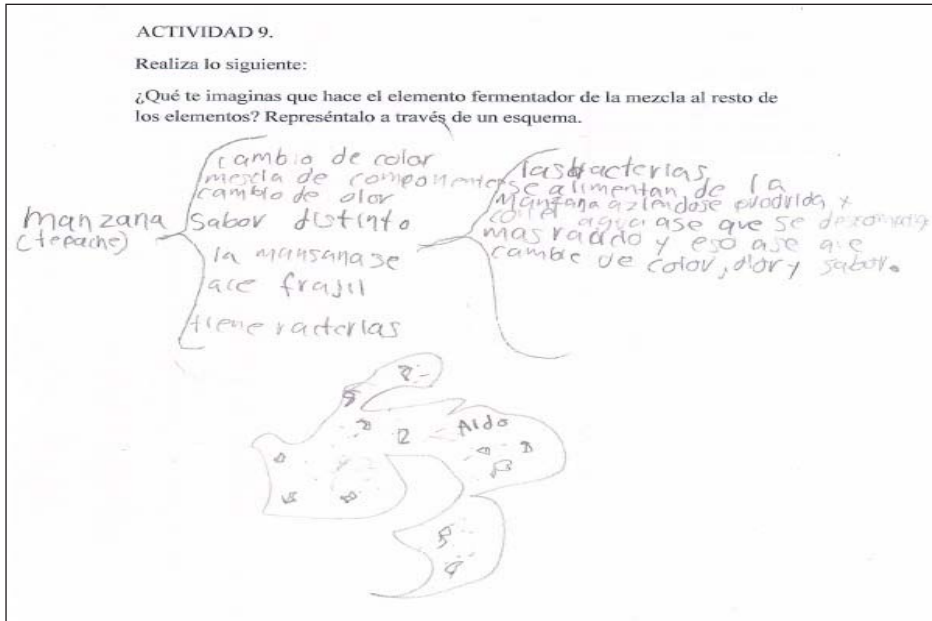 ACTIVIDAD 9.
Realiza lo siguiente:
¿Qué te imaginas que hace el elemento fermentador de la mezcla al resto de
los elementos? Represéntalo a través de un esquema.
manzana
(tepache)
cambio de color
mescla de componentes
cambio de olor
Sabor distinto
la mansana se
ace frajil
tiene racterias
las bacterias
se alimentan de la
manzana aziendose podrida y
con el agua ase que se
mas rapido y eso ase que
cambie de color, olor y sabor.
Aldo